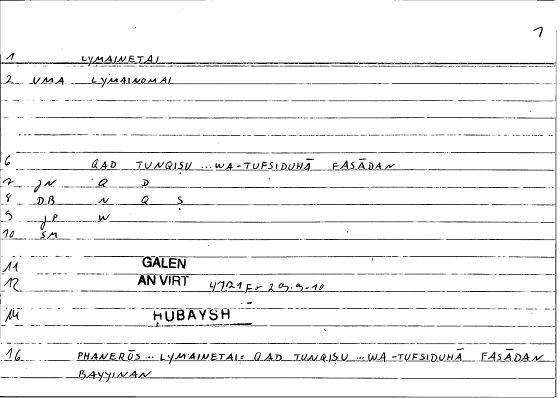 7
1 LYMAINETAI
2 VMA LYMAINOMAI
6 QAD TUNQIṢU ... WA-TUFSIDUHĀ FASĀDAN
7 JN Q D
8 DB N Q Ṣ
9 JP W
10 SM
11 GALEN
12 AN VIRT
14 ḤUBAYSH
16 PHANERŌS ... LYMAINETAI: QAD TUNQIṢU ... WA-TUFSIDUHĀ FASĀDAN
BAYYINAN